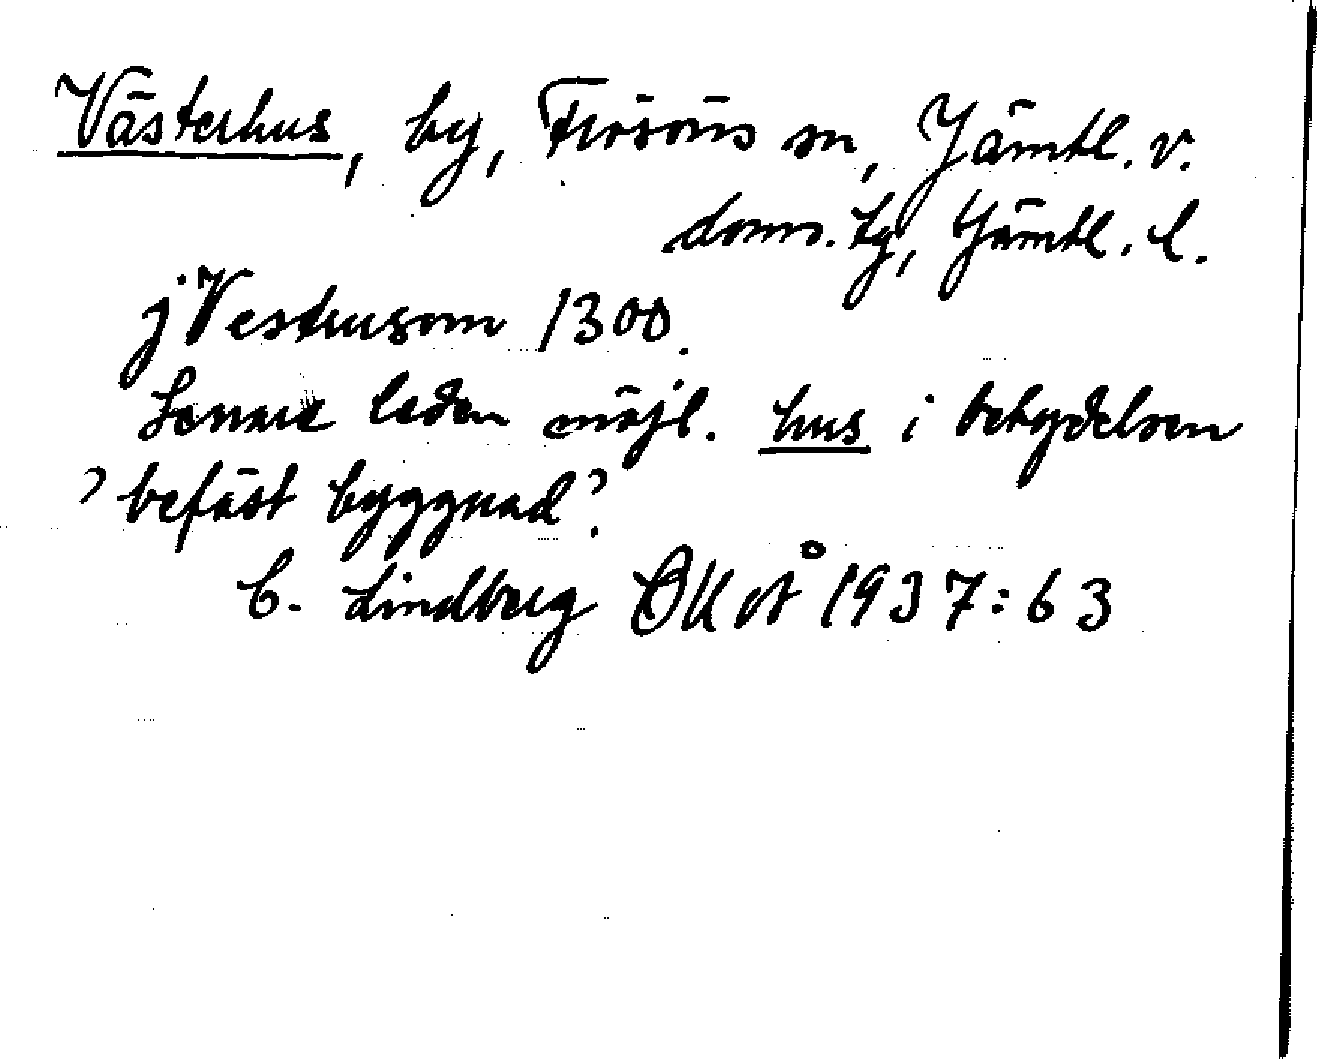 Västerhus, by, Frösöns sn, Jämtl. v.
doms. tg, Jämtl. l.
j Vestrusom 1300.
Senare leden möjl. hus i betydelsen
'befäst byggnad'.
C. Lindberg 1937:63